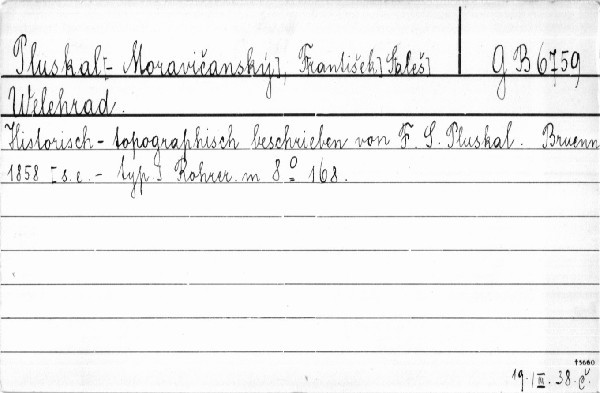 Pluskal[-Moravičanský], František [Saleš] GB 6759
Welehrad.
Historisch-topographisch beschrieben von F. S. Pluskal. Bruenn
1858 [s.e.- typ] Rohrer. m 8° 168.
15660
19./III. 38. Č.